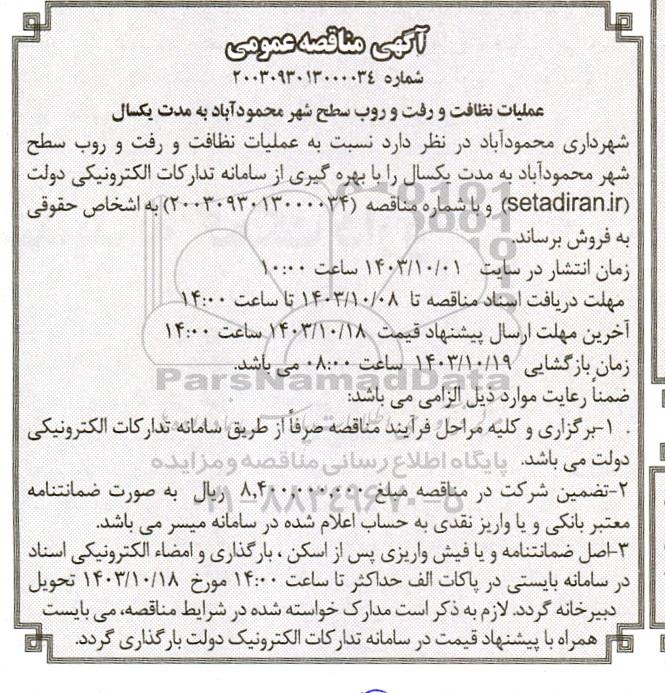 آگهی مناقصه عمومی
شماره ۲۰۰۳۰۹۳۰۱۳۰۰۰۰۳۴
عملیات نظافت و رفت و روب سطح شهر محمودآباد به مدت یکسال
شهرداری محمودآباد در نظر دارد نسبت به عملیات نظافت و رفت و روب سطح
شهر محمودآباد به مدت یکسال را با بهره گیری از سامانه تدارکات الکترونیکی دولت
(setadiran.ir) و با شماره مناقصه (۲۰۰۳۰۹۳۰۱۳۰۰۰۰۳۴) به اشخاص حقوقی
به فروش برساند.
زمان انتشار در سایت ۱۴۰۳/۱۰/۰۱ ساعت ۱۰:۰۰
مهلت دریافت اسناد مناقصه تا ۱۴۰۳/۱۰/۰۸ تا ساعت ۱۴:۰۰
آخرین مهلت ارسال پیشنهاد قیمت ۱۴۰۳/۱۰/۱۸ ساعت ۱۴:۰۰
زمان بازگشایی ۱۴۰۳/۱۰/۱۹ ساعت ۰۸:۰۰ می باشد.
ParsNamadData
ضمناً رعایت موارد ذیل الزامی می باشد:
. ۱-برگزاری و کلیه مراحل فرآیند مناقصه صرفاً از طریق سامانه تدارکات الکترونیکی
دولت می باشد.
پایگاه اطلاع رسانی مناقصه و مزایده
۲-تضمین شرکت در مناقصه مبلغ ۸,۴۰۰,۰۰۰,۰۰۰ ریال به صورت ضمانتنامه
۰۲۱-۸۸۳۴۹۶۷۰-۵
معتبر بانکی و یا واریز نقدی به حساب اعلام شده در سامانه میسر می باشد.
۳-اصل ضمانتنامه و یا فیش واریزی پس از اسکن ، بارگذاری و امضاء الکترونیکی اسناد
در سامانه بایستی در پاکات الف حداکثر تا ساعت ۱۴:۰۰ مورخ ۱۴۰۳/۱۰/۱۸ تحویل
دبیرخانه گردد. لازم به ذکر است مدارک خواسته شده در شرایط مناقصه، می بایست
همراه با پیشنهاد قیمت در سامانه تدارکات الکترونیک دولت بارگذاری گردد.